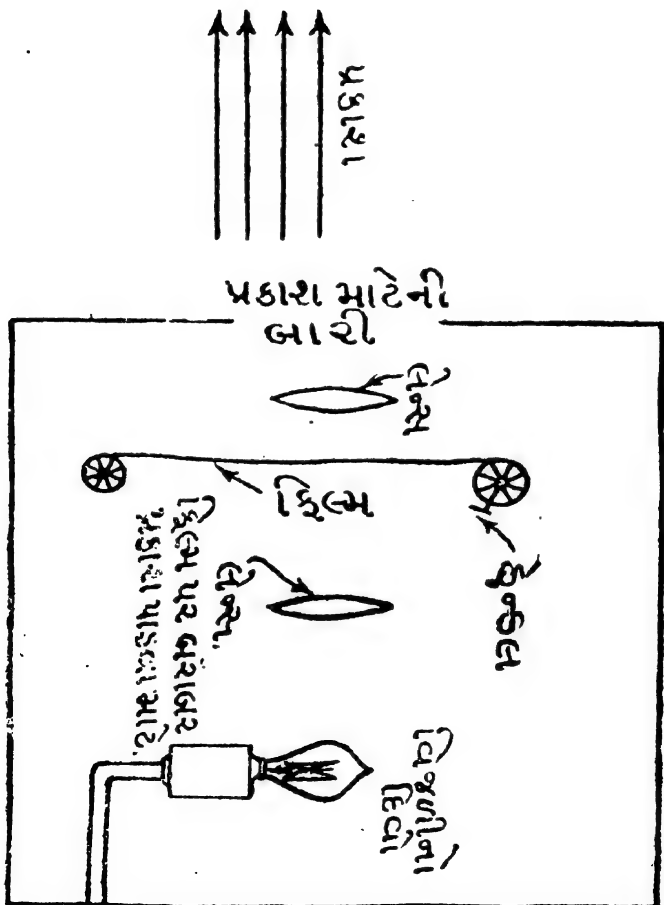 પ્રકાશ
પ્રકાશ માટેની
બારી
લેન્સ
ફિલ્મ
હેન્ડલ
લેન્સ.
ફિલ્મ પર બરાબર
પ્રકાશ પાડવા માટે.
વિજળીનો
દિવો